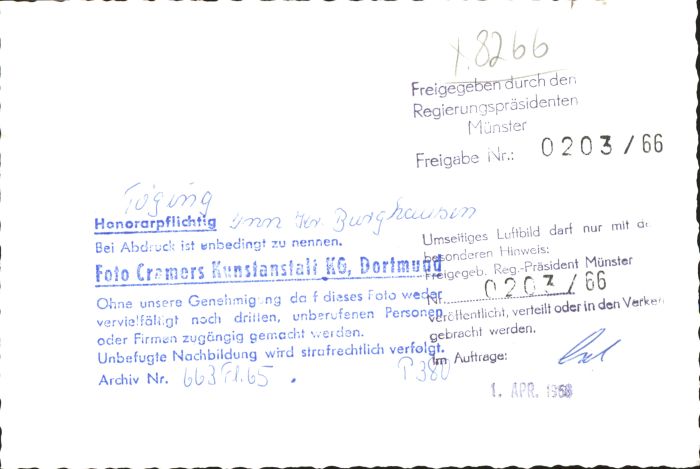 8266
Freigegeben durch den
Regierungspräsidenten
Münster
Freigabe Nr.: 0203/66
Töging
Honorarpflichtig Inn Kr. Burghausen
Bei Abdruck ist unbedingt zu nennen.
Foto Cramers Kunstanstalt KG, Dortmund
Ohne unsere Genehmigung da f dieses Foto weder
vervielfältigt noch dritten, unberufenen Personen
oder Firmen zugängig gemacht werden.
Unbefugte Nachbildung wird strafrechtlich verfolgt.
Archiv Nr. 663 Fl. 65 . P 380
Umseitiges Luftbild darf nur mit de
besonderen Hinweis:
Freigegeb. Reg.-Präsident Münster
Nr. 0203/66
veröffentlicht, verteilt oder in den Verke
gebracht werden.
Im Auftrage:
1. APR. 1968